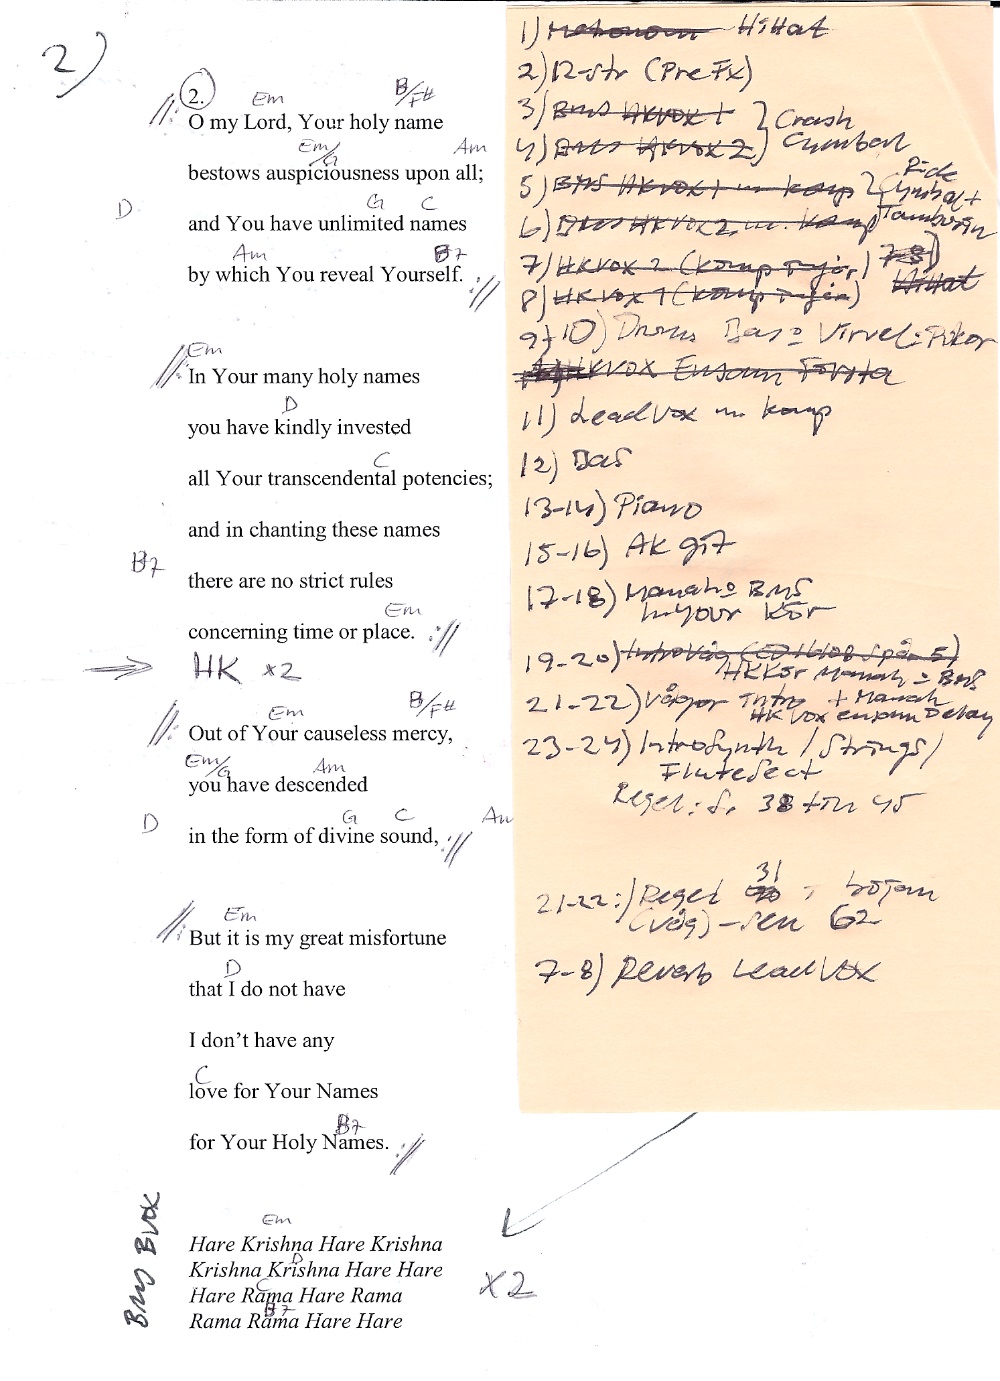 2)
2.
Em B/F#
//: O my Lord, Your holy name
Em/G Am
bestows auspiciousness upon all;
D G C
and You have unlimited names
Am B7
by which You reveal Yourself. ://
Em
//: In Your many holy names
D
you have kindly invested
C
all Your transcendental potencies;
and in chanting these names
B7
there are no strict rules
Em
concerning time or place. ://
HK x2
Em B/F#
//: Out of Your causeless mercy,
Em/G Am
you have descended
D G C Am
in the form of divine sound, ://
Em
//: But it is my great misfortune
D
that I do not have
I don't have any
C
love for Your Names
B7
for Your Holy Names. ://
BMS BVOX
Em
Hare Krishna Hare Krishna
D
Krishna Krishna Hare Hare
C
Hare Rama Hare Rama
B7
Rama Rama Hare Hare
x2
1) Metronom HiHat
2) 12-str (Pre Fx)
3) BMS HKVOX 1 } Crash
4) BMS HKVOX 2 } Cymbal
5) BMS HKVOX 1 m komp } Ride Cymbal +
6) BMS HKVOX 2 m. komp Tamburin
7) HKVOX 2 (komp
8) HKVOX 1 (komp
HiHat
9+10) Drums Bas= Virvel:Pukor
HKVOX Ensam Första
11) LeadVox m komp
12) Bas
13-14) Piano
15-16) AK git
17-18) Manah= BMS
In Your Kör
19-20) Introvåg (CD 16108 Spår 5)
HKKör Manah = BMS
21-22) Vågor Intro + Manah
HK Vox ensam Delay
23-24) IntroSynth / Strings /
Flutesect
Regel: 38 till 45
21-22:) Regel 31 i början
(våg) - sen 62
7-8) Reverb LeadVox